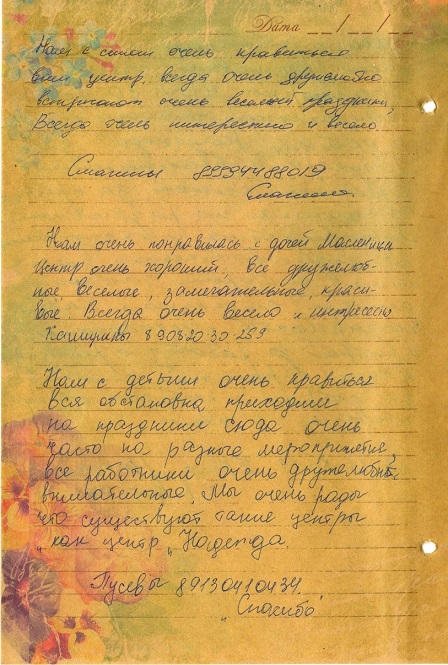 Дата __/__/__
Нам с сыном очень нравиться
ваш центр. всегда очень дружелюбно
встречают очень веселый праздники,
Всегда очень интересно и весело.
Смагины 89994488019
Нам очень понравилась с дочей Масленица
Центр очень хороший, все дружелюб-
ные, веселые, замечательные, краси-
вые. Всегда очень весело и интресно
890820-30-259
Нам с детьми очень нравиться
вся обстановка приходим
на праздники сюда очень
часто на разные мероприятия,
все работники очень дружелюбные
внимательные. Мы очень рады
что существуют такие центры
"как центр "Надежда.
Гусевы 89130410434.
"Спасибо"